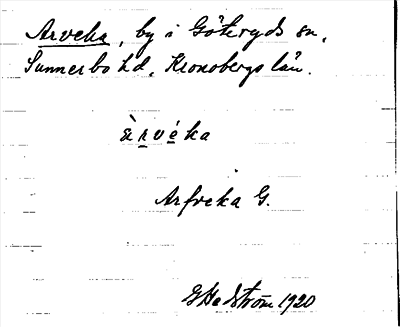 Arveka, by i Göteryds sn,
Sunnerbo hd, Kronobergs län.
ὲrvéka
Arfveka G.
G Hedström 1920